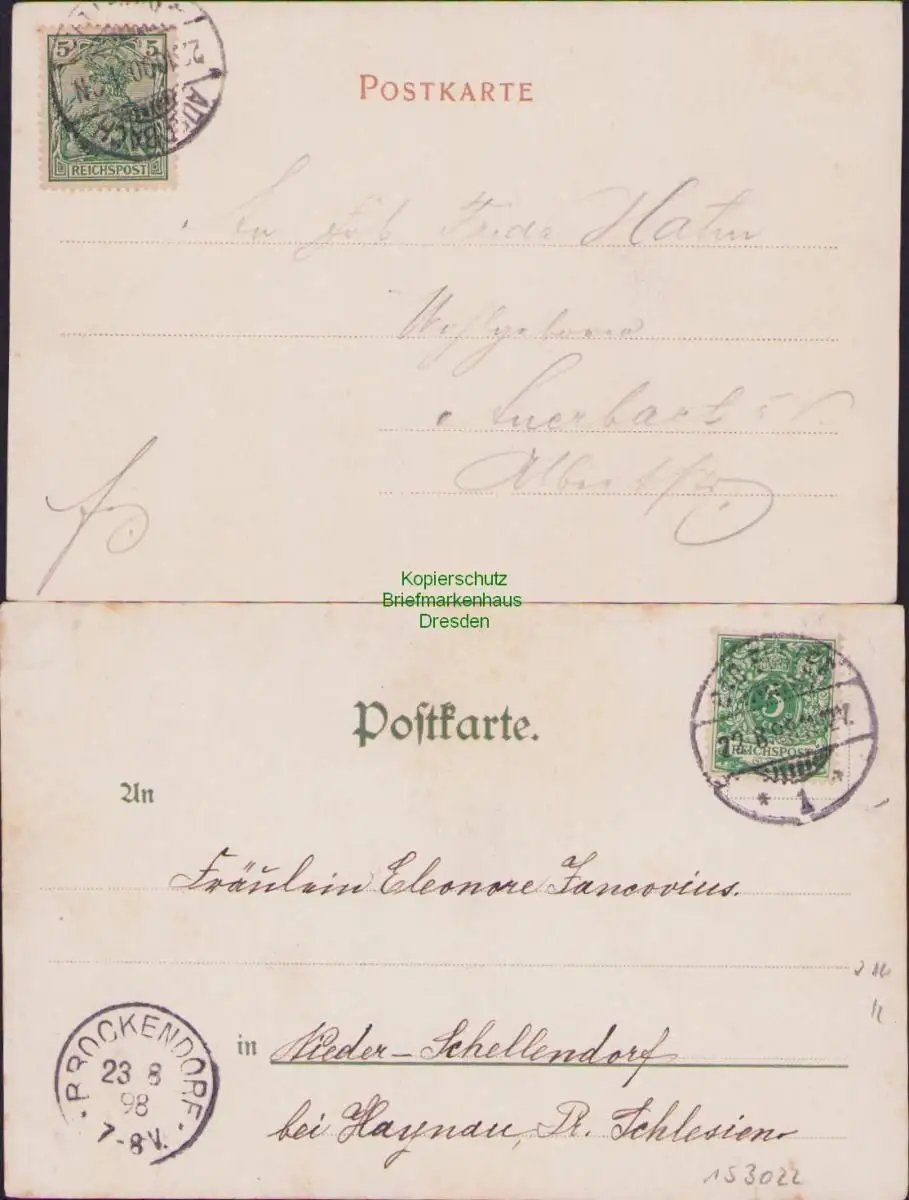 5 5
REICHSPOST
POSTKARTE
Frida Hahn
Wohlgeboren
Auerbach
Kopierschutz
Briefmarkenhaus
Dresden
Postkarte.
5
REICHSPOST
22.8.98
* 1 *
An
Fräulein Eleonore Jancovius.
in Nieder-Schellendorf
bei Haynau, Pr. Schlesien
BROCKENDORF
23 8
98
7-8V.
153022